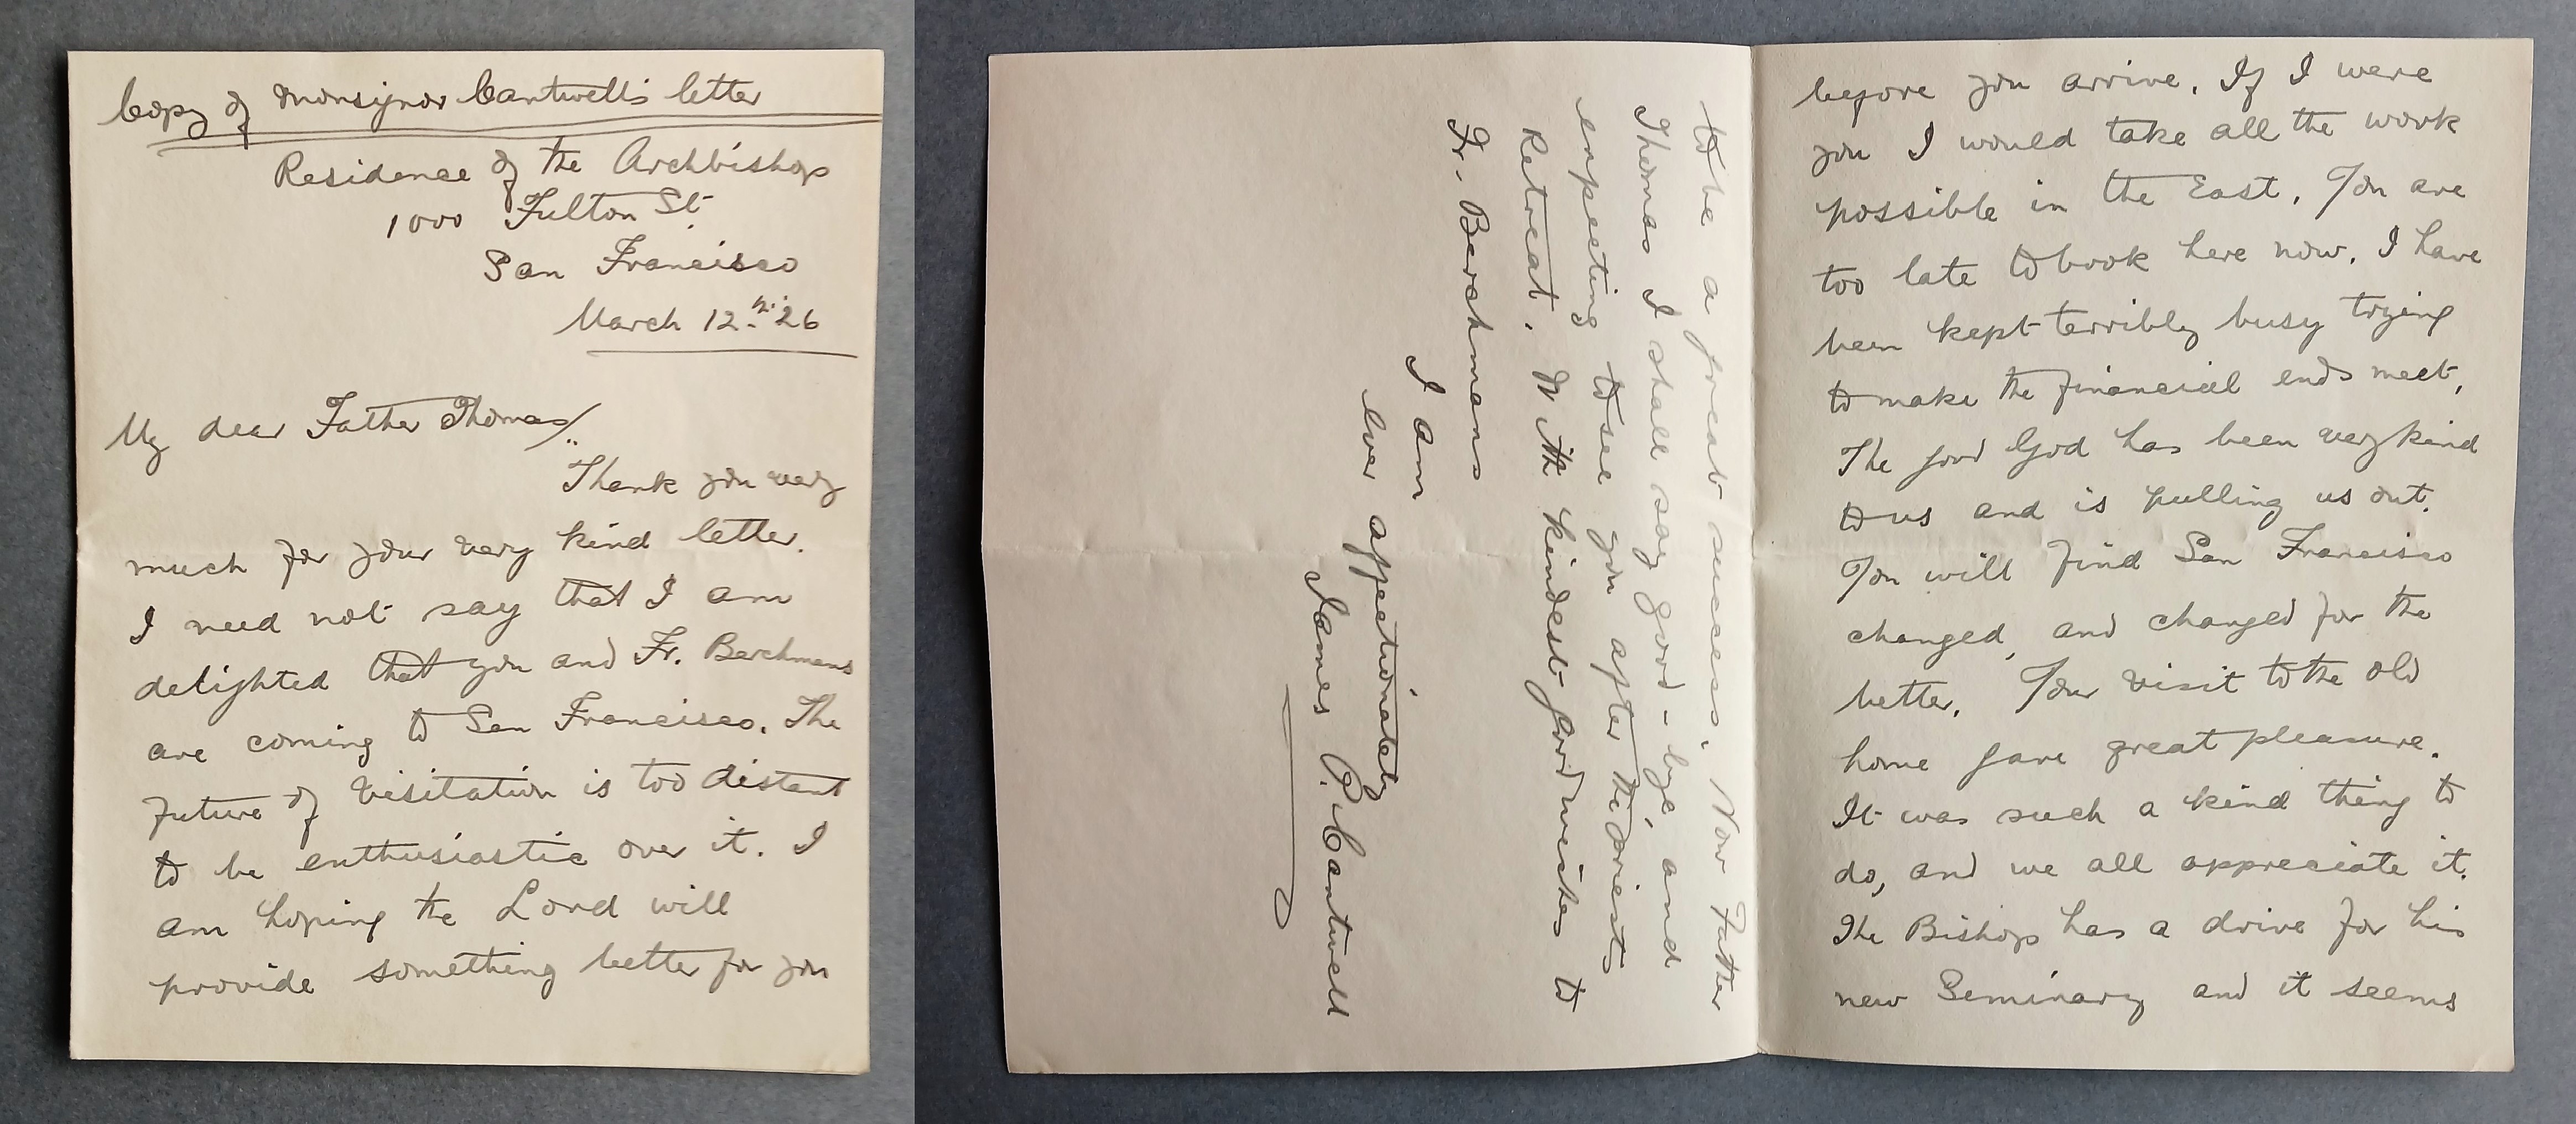 Copy of Monsignor Cantwell's letter
Residence of the Archbishop
1000 Fulton St
San Francisco
March 12th '26
My dear Father Thomas/..
Thank you very
much for your very kind letter.
I need not say that I am
delighted that you and Fr. Berchmans
are coming to San Francisco. The
future of Visitation is too distant
to be enthusiastic over it. I
am hoping the Lord will
provide something better for you
before you arrive. If I were
you I would take all the work
possible in the East. You are
too late to book here now. I have
been kept terribly busy trying
to make the financial ends meet,
The good God has been very kind
to us and is pulling us out.
You will find San Francisco
changed, and changed for the
better. Your visit to the old
home gave great pleasure.
It was such a kind thing to
do, and we all appreciate it.
The Bishop has a drive for his
new Seminary and it seems
to be a great success. Now Father
Thomas I shall say good-bye, and
expecting to see you after the priests
Retreat. With kindest good wishes to
Fr. Berchmans
I am
ever affectionately
James P. Cantwell